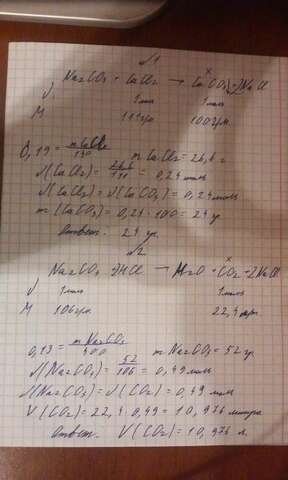 √1
x
Na₂CO₃ + CaCl₂ → CaCO₃↓ + 2NaCl
ν 1моль 1моль
M 111гр. 100гр.
0,19 = mCaCl₂/140 mCaCl₂ = 26,6 г
ν(CaCl₂) = 26,6/111 = 0,24 моль
ν(CaCl₂) = ν(CaCO₃) = 0,24 моль
m(CaCO₃) = 0,24 · 100 = 24 гр.
Ответ: 24 гр.
√2
x
Na₂CO₃ + 2HCl → H₂O + CO₂ + 2NaCl
ν 1моль 1моль
M 106гр. 22,4
0,13 = mNa₂CO₃/400 mNa₂CO₃ = 52 гр.
ν(Na₂CO₃) = 52/106 = 0,49 моль
ν(Na₂CO₃) = ν(CO₂) = 0,49 моль
V(CO₂) = 22,4 · 0,49 = 10,976 литра
Ответ. V(CO₂) = 10,976 л.